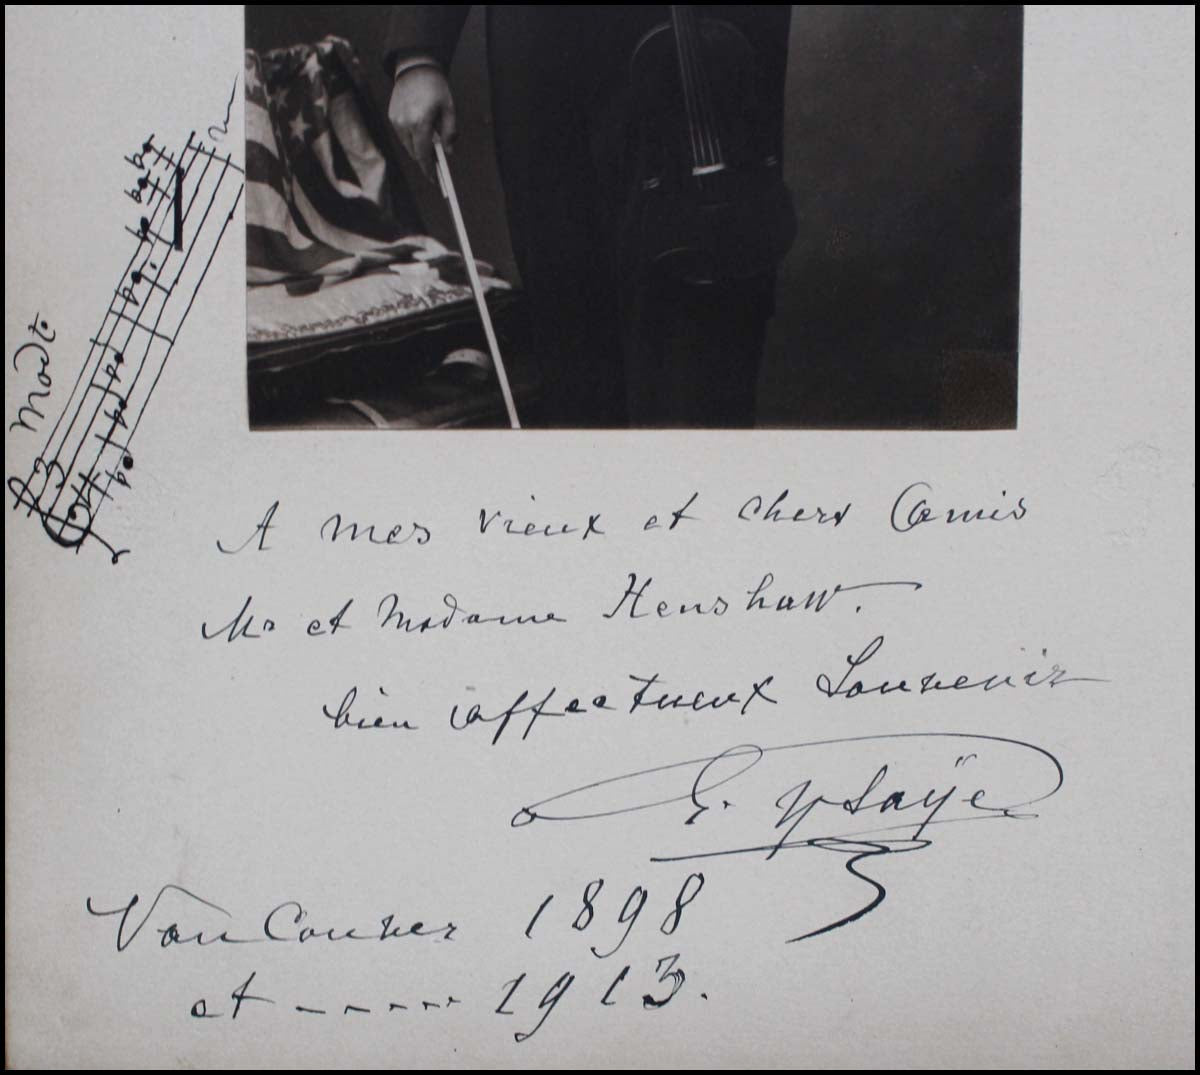 Modto.
A mes vieux et chers Amis
Mr et Madame Henshaw.
bien affectueux Souvenir
E. Ysaÿe
VanCouver 1898
et ----- 1913.